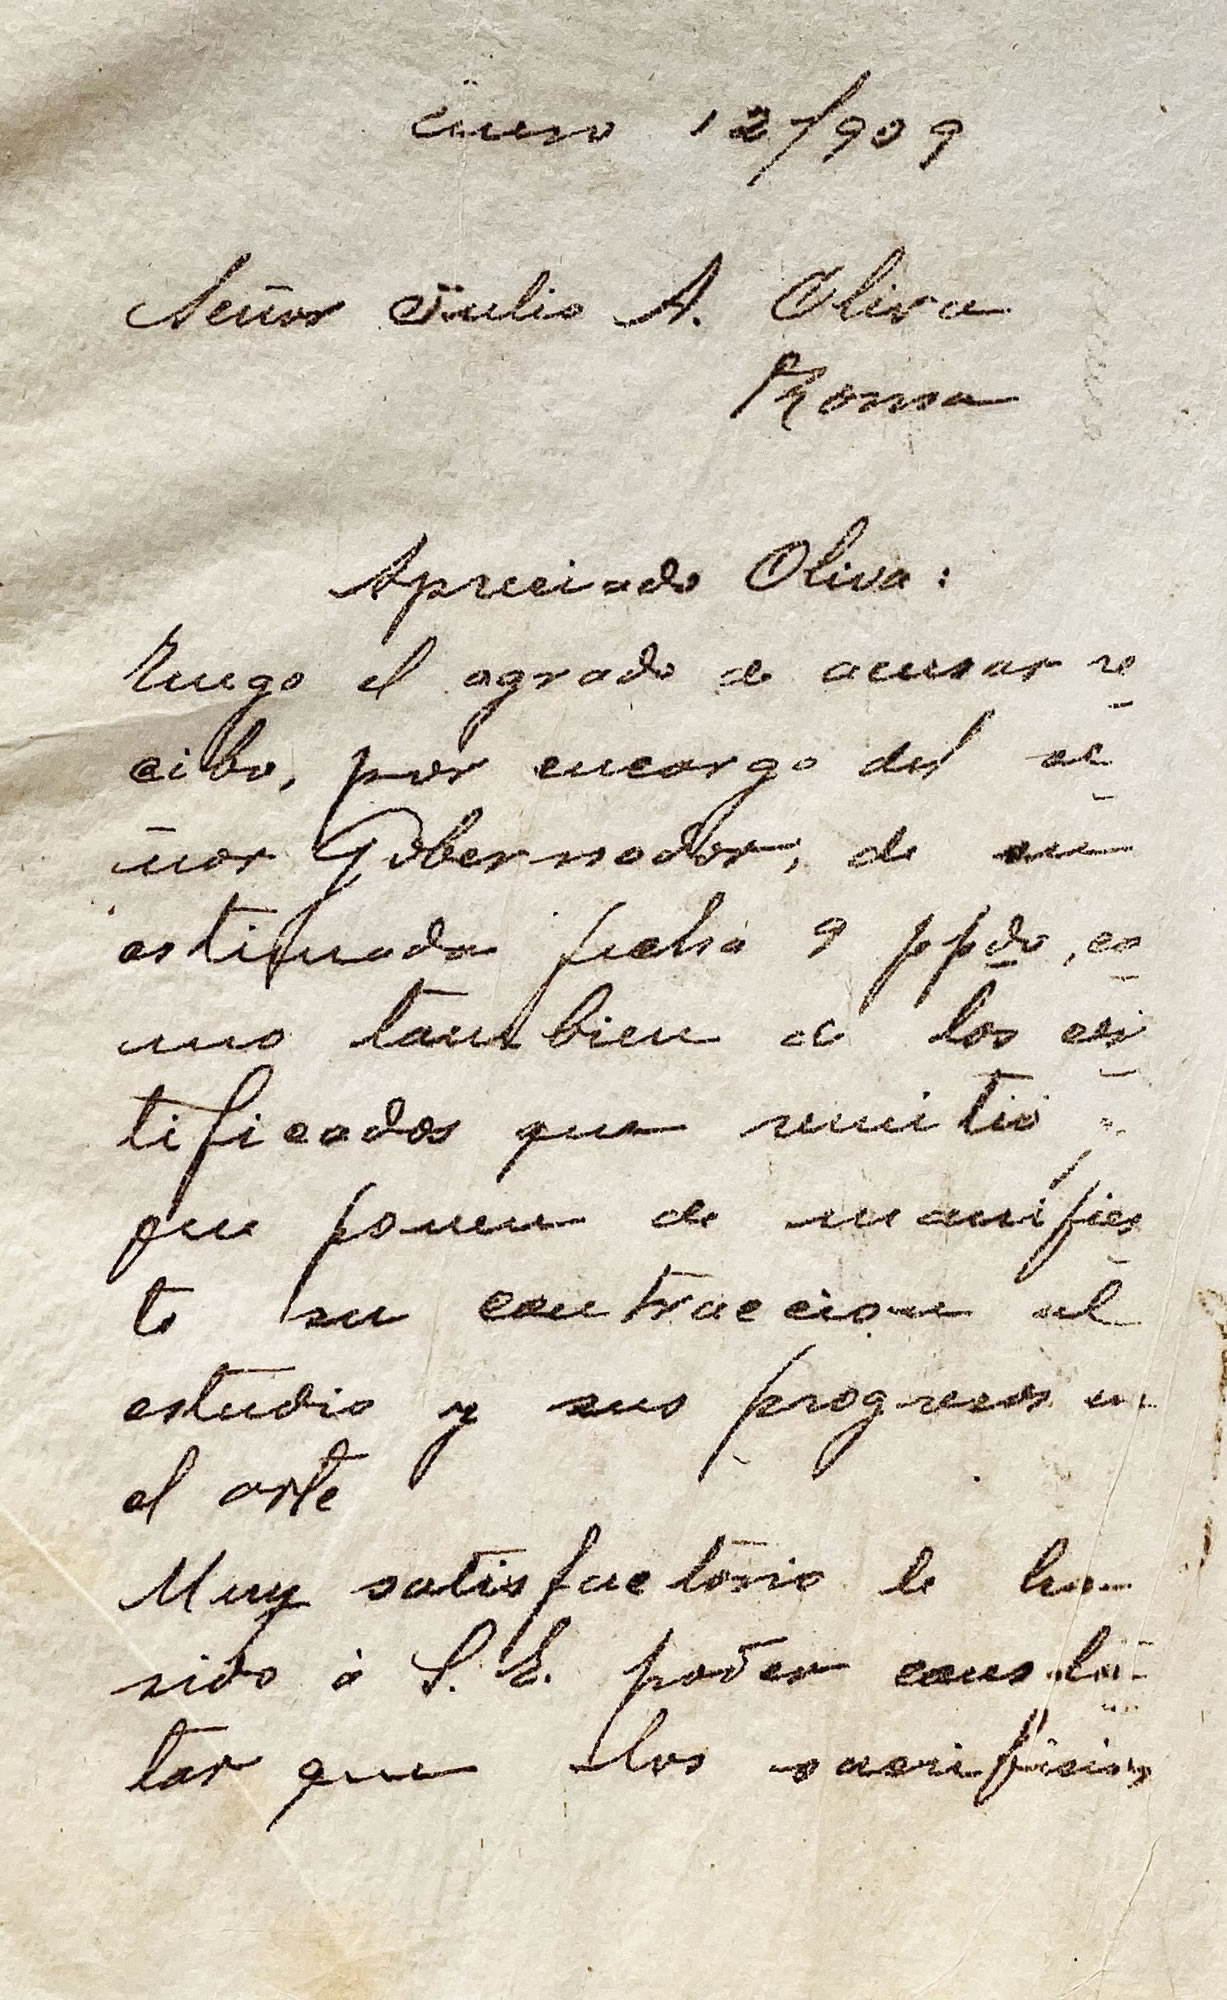 Enero 12/909
Señor Julio A. Oliva
Roma
Apreciado Oliva:
Tengo el agrado de acusar re
cibo, por encargo del se
ñor Gobernador, de su
estimada fecha 9 ppdo, co
mo tambien de los cer
tificados que remitió
que ponen de manifies
to su contraccion al
estudio y sus progresos en
el arte
Muy satisfactorio le ha
sido á S. E. poder consta
tar que los sacrificios